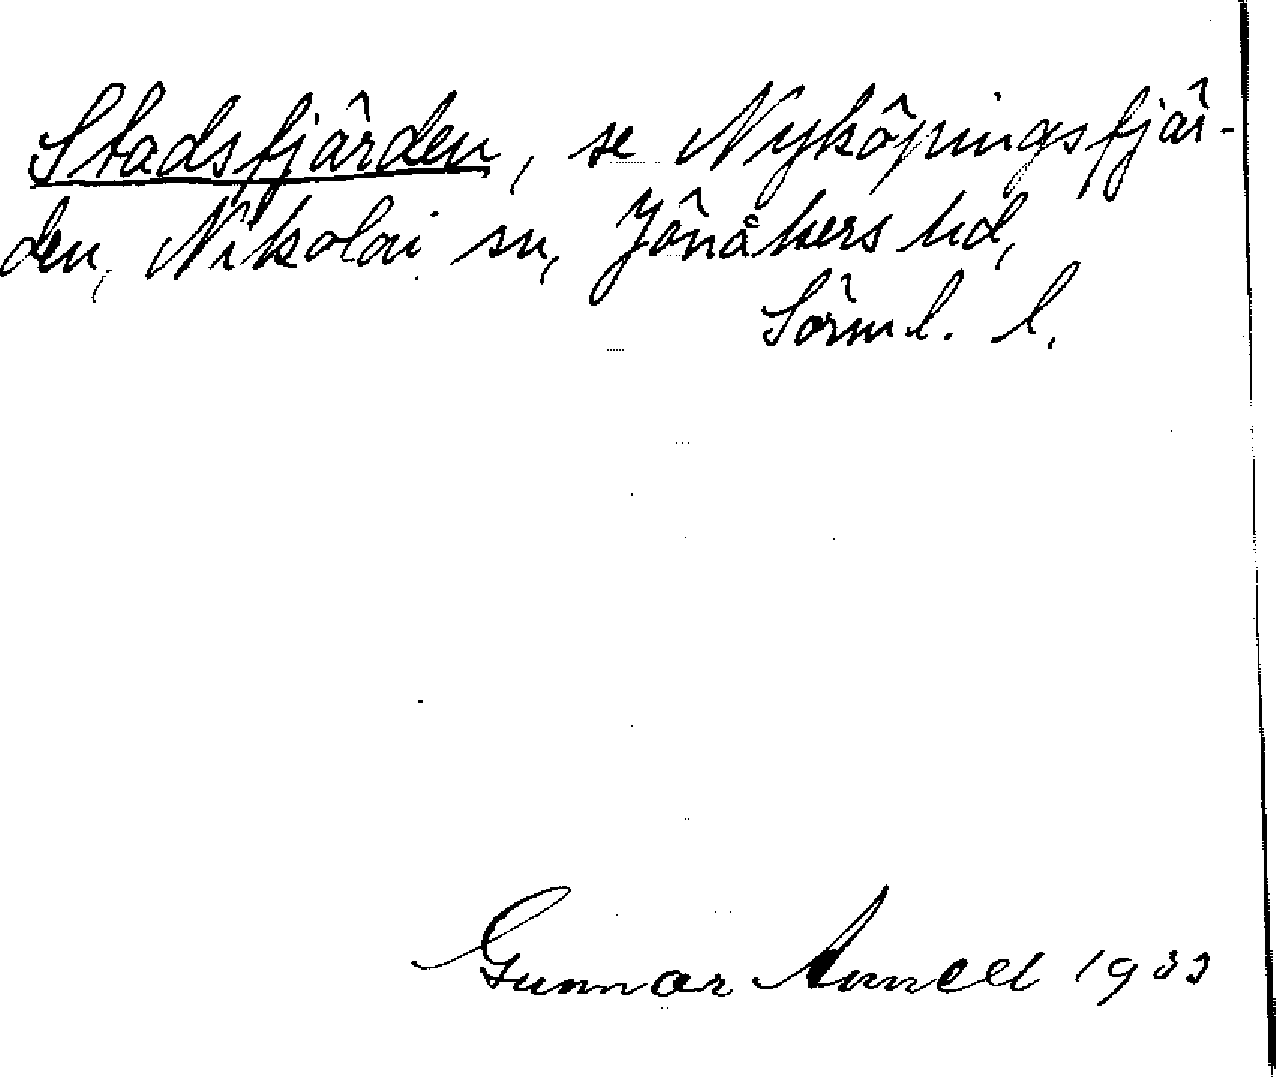 Stadsfjärden, se Nyköpingsfjär-
den, Nikolai sn, Jönåkers hd,
Sörml. l.
Gunnar Annell 1933